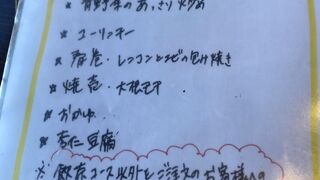 * 青野菜のあっさり炒め
* ユーリンチー
* 春巻・レンコンとエビの包み焼き
* 焼売・大根モチ
* おかゆ…
* 杏仁豆腐
※ 飲茶コース以外をご注文のお客様への